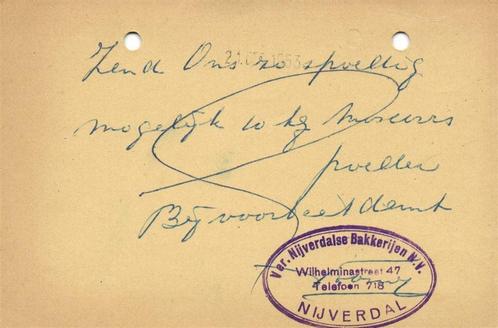 Zend Ons zo spoedig
mogelijk 10 kg
poeder
Bij voorbaat dank
Ver. Nijverdalse Bakkerijen N.V.
Wilhelminastreet 47
Telefoon 718
NIJVERDAL